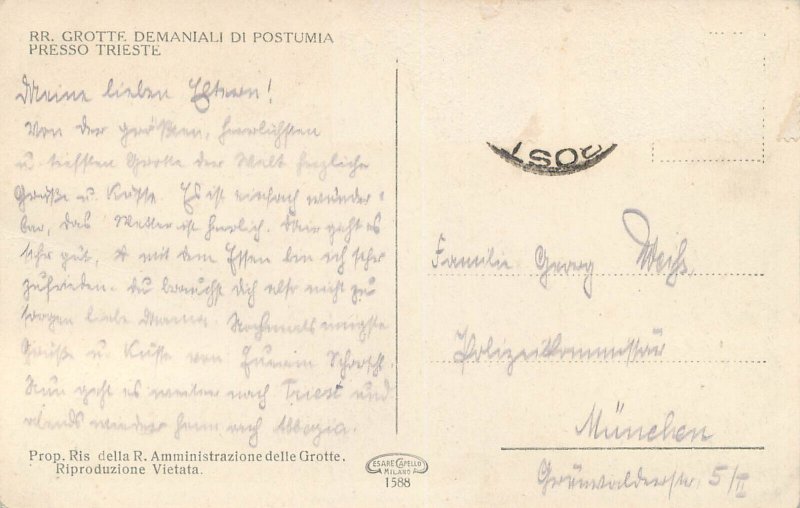 RR. GROTTE DEMANIALI DI POSTUMIA
PRESSO TRIESTE
Meine lieben Eltern!
Von der größten, herrlichsten
u. tiefsten Grotte der Welt herzliche
Grüße u. Küsse. Es ist einfach wunder-
bar, das Wetter ist herrlich. Mir geht es
sehr gut, & mit dem Essen bin ich sehr
zufrieden. Du brauchst dich also nicht zu
sorgen liebe Mama. Nochmals innigste
Grüße u. Küsse von Euerm
Nun geht es weiter nach Triest und
abends wieder heim nach Abbazia.
Prop. Ris della R. Amministrazione delle Grotte.
Riproduzione Vietata.
CESARE CAPELLO
MILANO
1588
POST
Familie Georg
Polizeikommissär
München
Grünwalderstr. 5/II